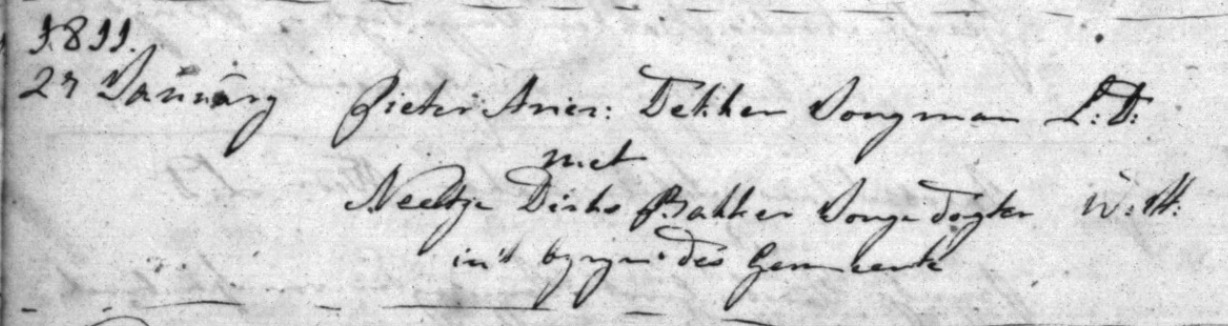 1811.
27 Januarÿ Pieter Aries: Dekker Jongman L: D:
met
Neeltje Dirks Bakker Jonge dogter W: M:
in't byzyn des Gemeente